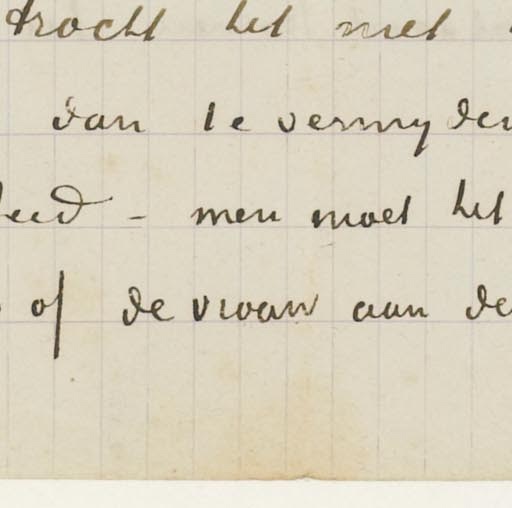 trocht het met
dan te vermyden
- men moet het
of de vrouw aan de